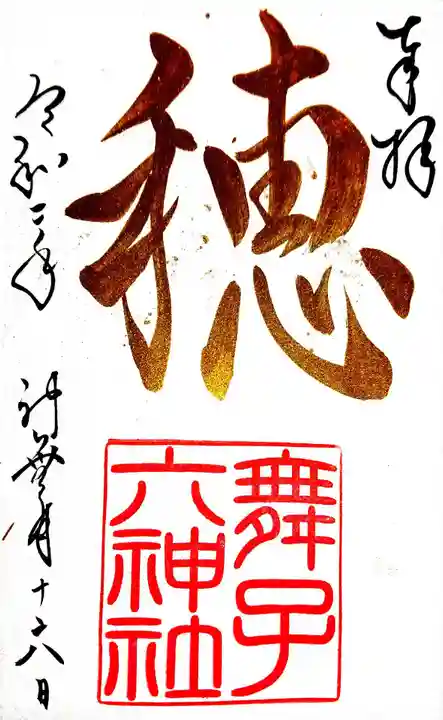 奉拝
穂
舞子
六神社
令和二年
神無月十六日